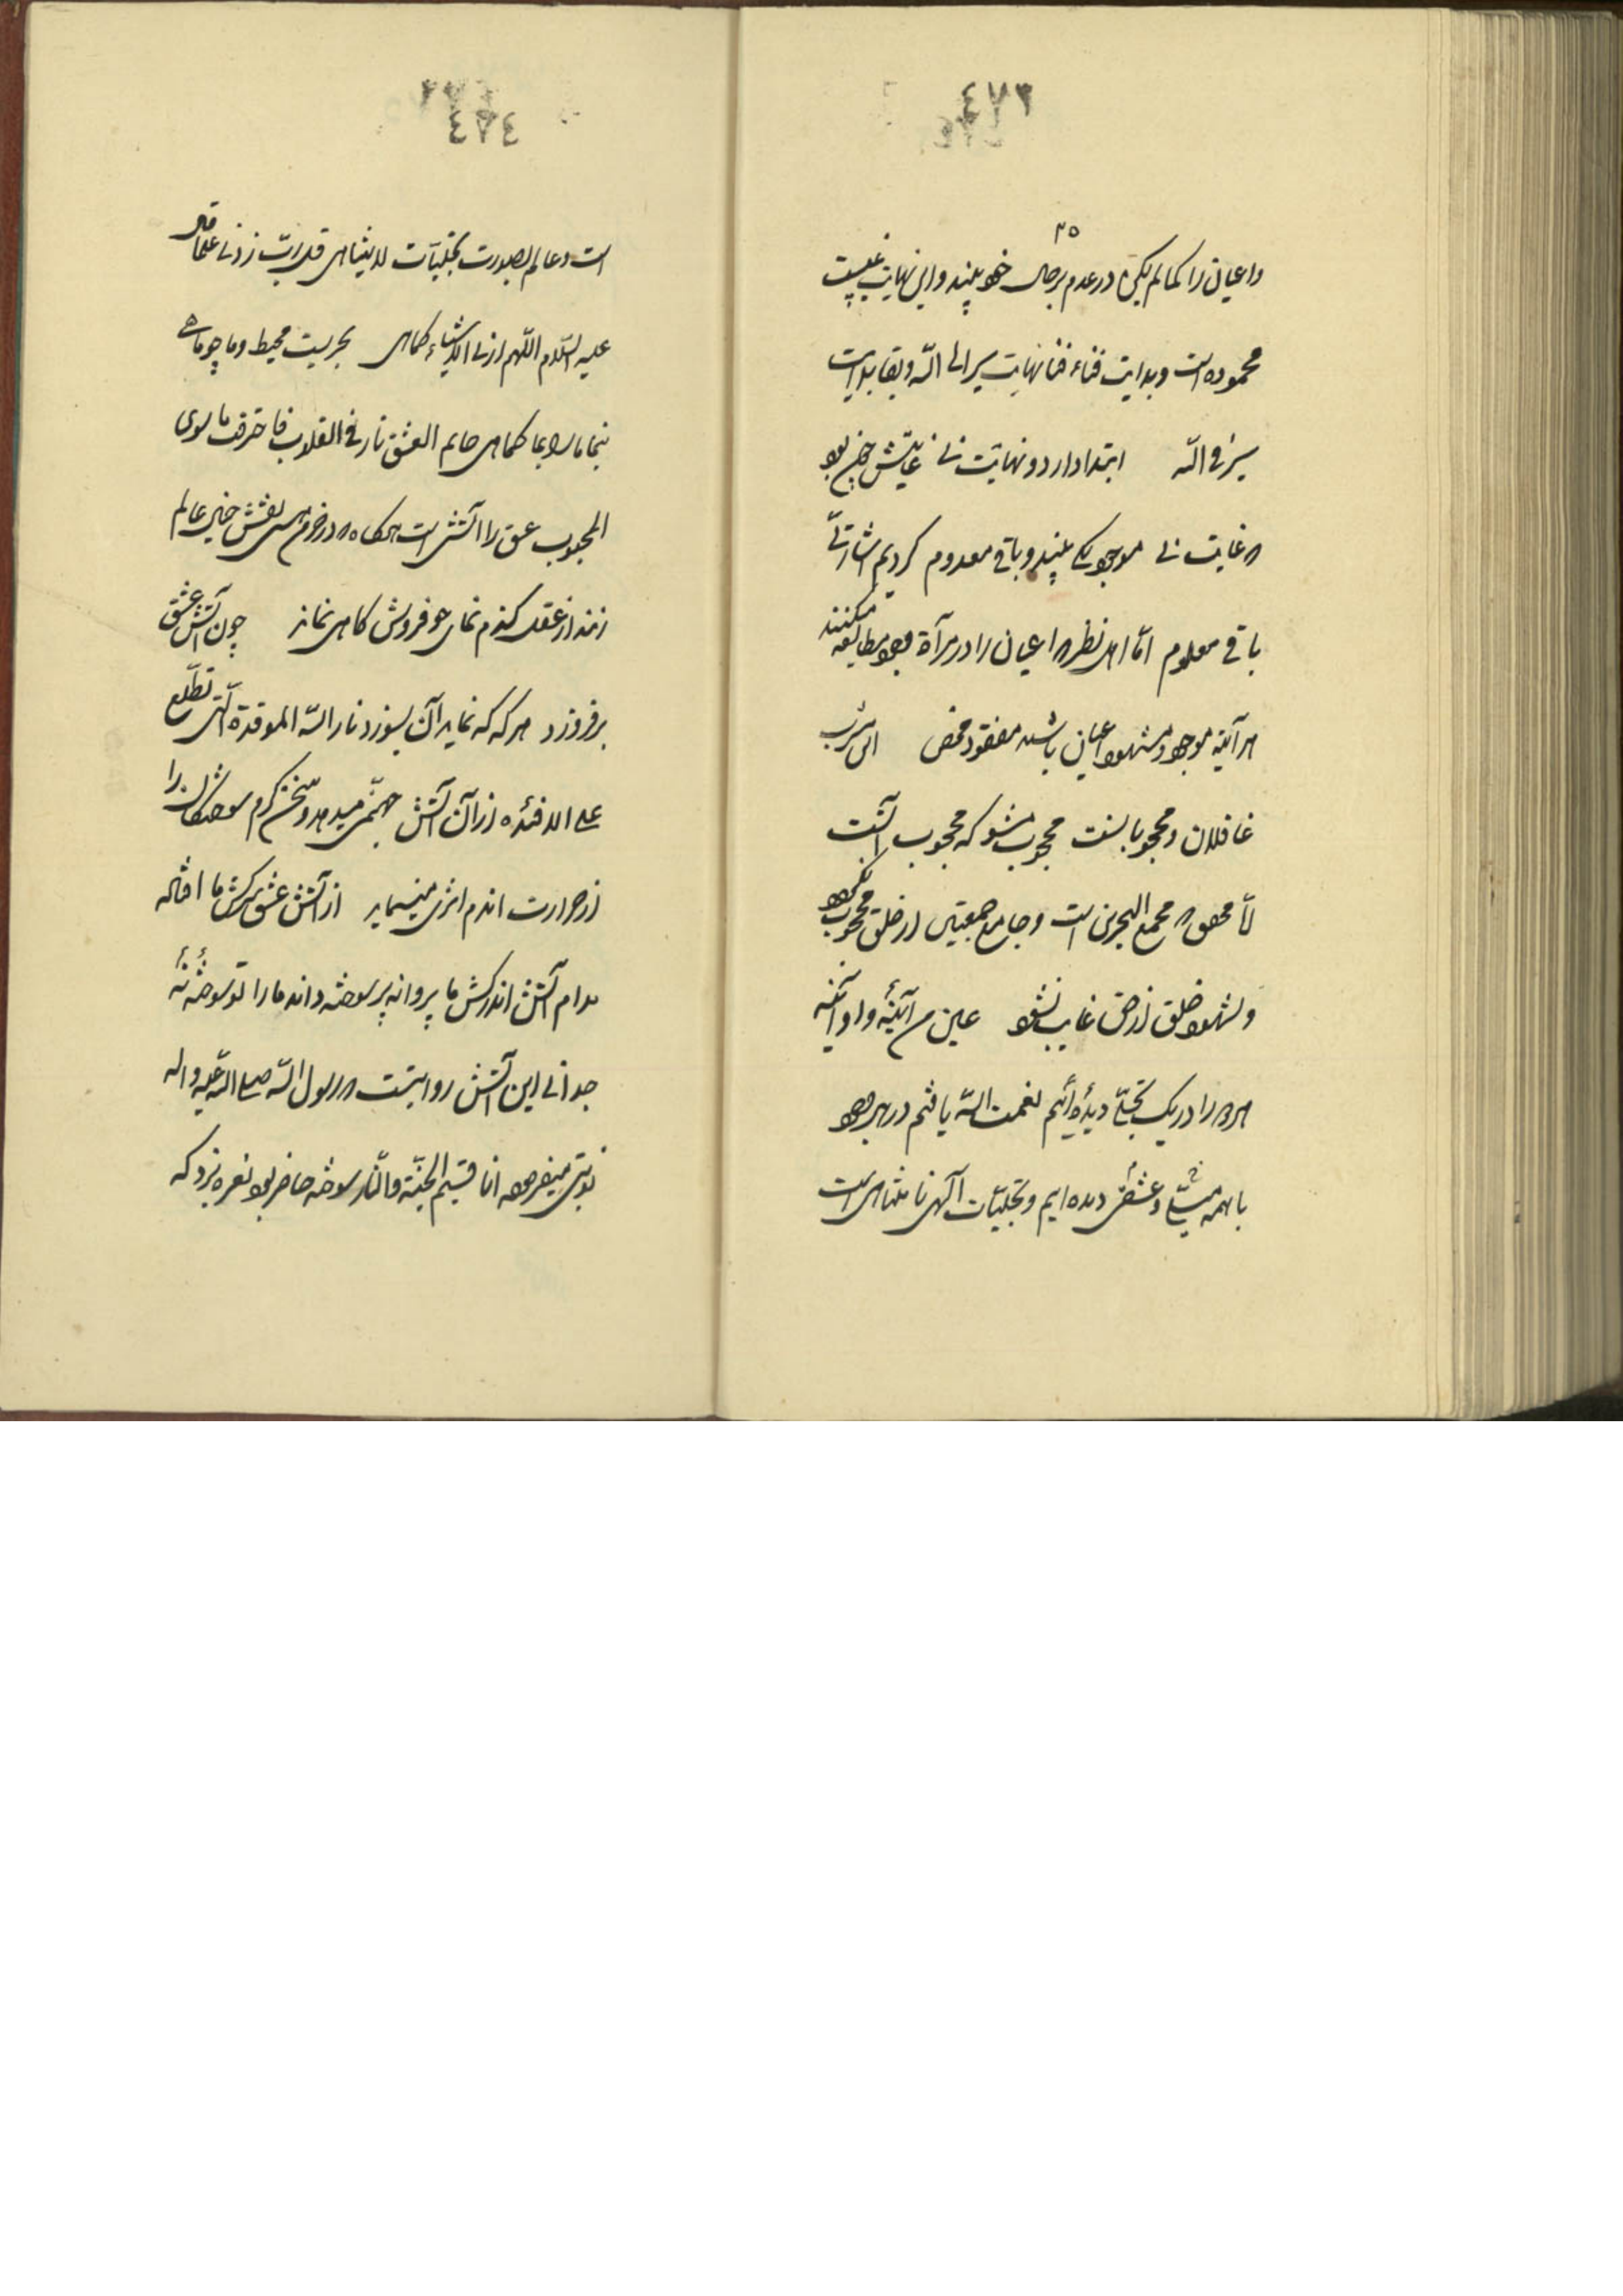 ٤٧٣
٣٥
واعیان را کمالم یکن در عدم برحال خود بیند و این نهایت غیبت
محموده است و بدایت فناء فنا نهایت سیر الی الله و بقا بدایت
سیر فی الله ابتدا دارد و نهایت نی غایتش چون بود
غایت نی موجود یکی بیند و باقی معدوم کردیم اشارتی
باقی معلوم اما اهل نظر اعیان را در مرآة وجود مطالعه میکنند
هر آینه موجود و مشهود اعیان باشد مفقود محض این مشرب
غافلان و محجوبا نست محجوب مشو که محجوب آنست
اما محقق که مجمع البحرین است و جامع جمعیتین از خلق محجوب نگردد
و بشهود خلق از حق غایب نشود عین من آینه و او آینه
هر دو را در یک تجلی دیده‌ایم نعمت الله یافتم در هر وجود
با همه و عشقش دیده ایم و تجلیات الهی نا متناهی است
٤٧٤
است و عالم بصورت تجلیات لایتناهی قل رب زدنی علما قال
علیه السلام اللهم ارنی الاشیاء کماهی بحریست محیط و ما چو ماهی
بنما ما را بما کماهی العشق نار فی القلوب فاحترقت ما سوی
المحبوب عشق را آتش است در خرمن عالم
زند از عقل گندم نمای جو فروش کاهی نماند چون آتش عشق
برفروزد هر که که نماید آن بسوزد نار الله الموقدة التی تطلع
علی الافئده از آن آتش جهنمی میدمد و سخن گرم سوختگان را
از حرارت اندم اثری مینماید از آتش عشق سرکش ما افتاده
مدام آتش اندر کش ما پروانه پر سوخته داند ما را تو سوخته نه
جدا نی این آتش روایتست که رسول الله صلی الله علیه واله
نوبتی میفرمود انا قسیم الجنة والنار سوخته حاضر بود نعره بزد که